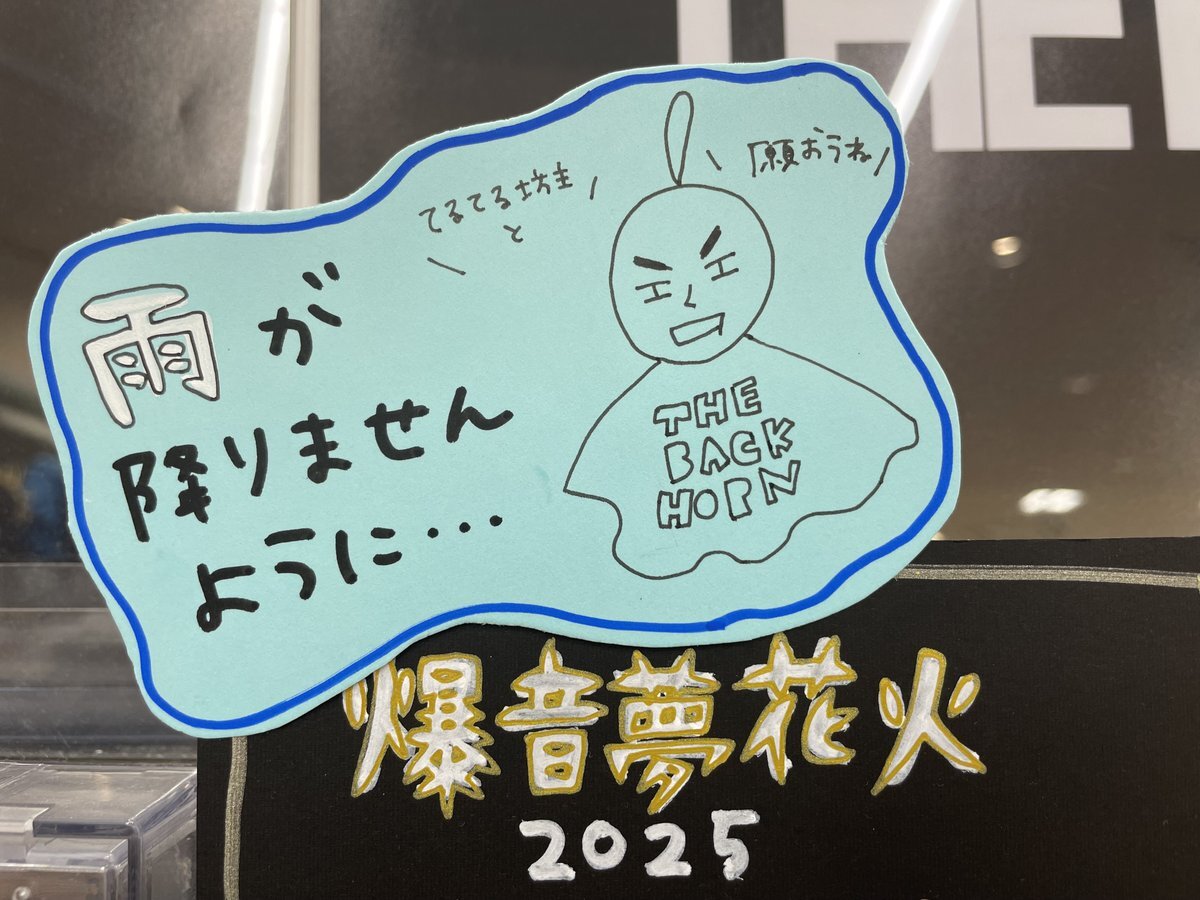 てるてる坊主
と
願おうね
雨が
降りません
ように…
THE
BACK
HORN
爆音夢花火
2025